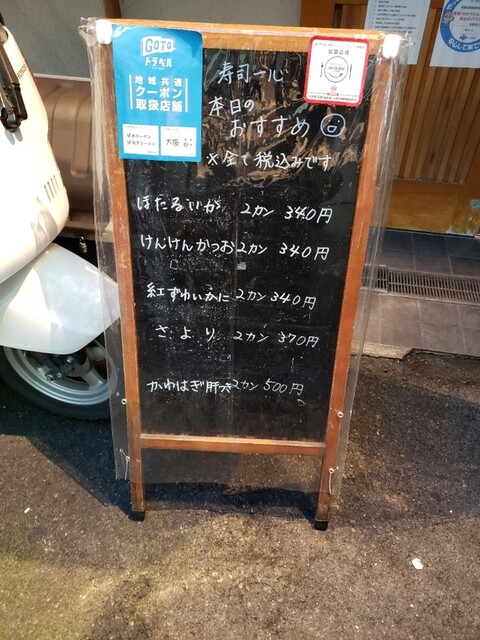 GOTO
トラベル
地域共通
クーポン
取扱店舗
紙クーポン
電子クーポン
大阪
加盟店
寿司一心
本日の
おすすめ
※全て税込みです
ほたるいか 2カン 340円
けんけんかつお 2カン 340円
紅ずわいかに 2カン 340円
さより 2カン 370円
かわはぎ肝 2カン 500円